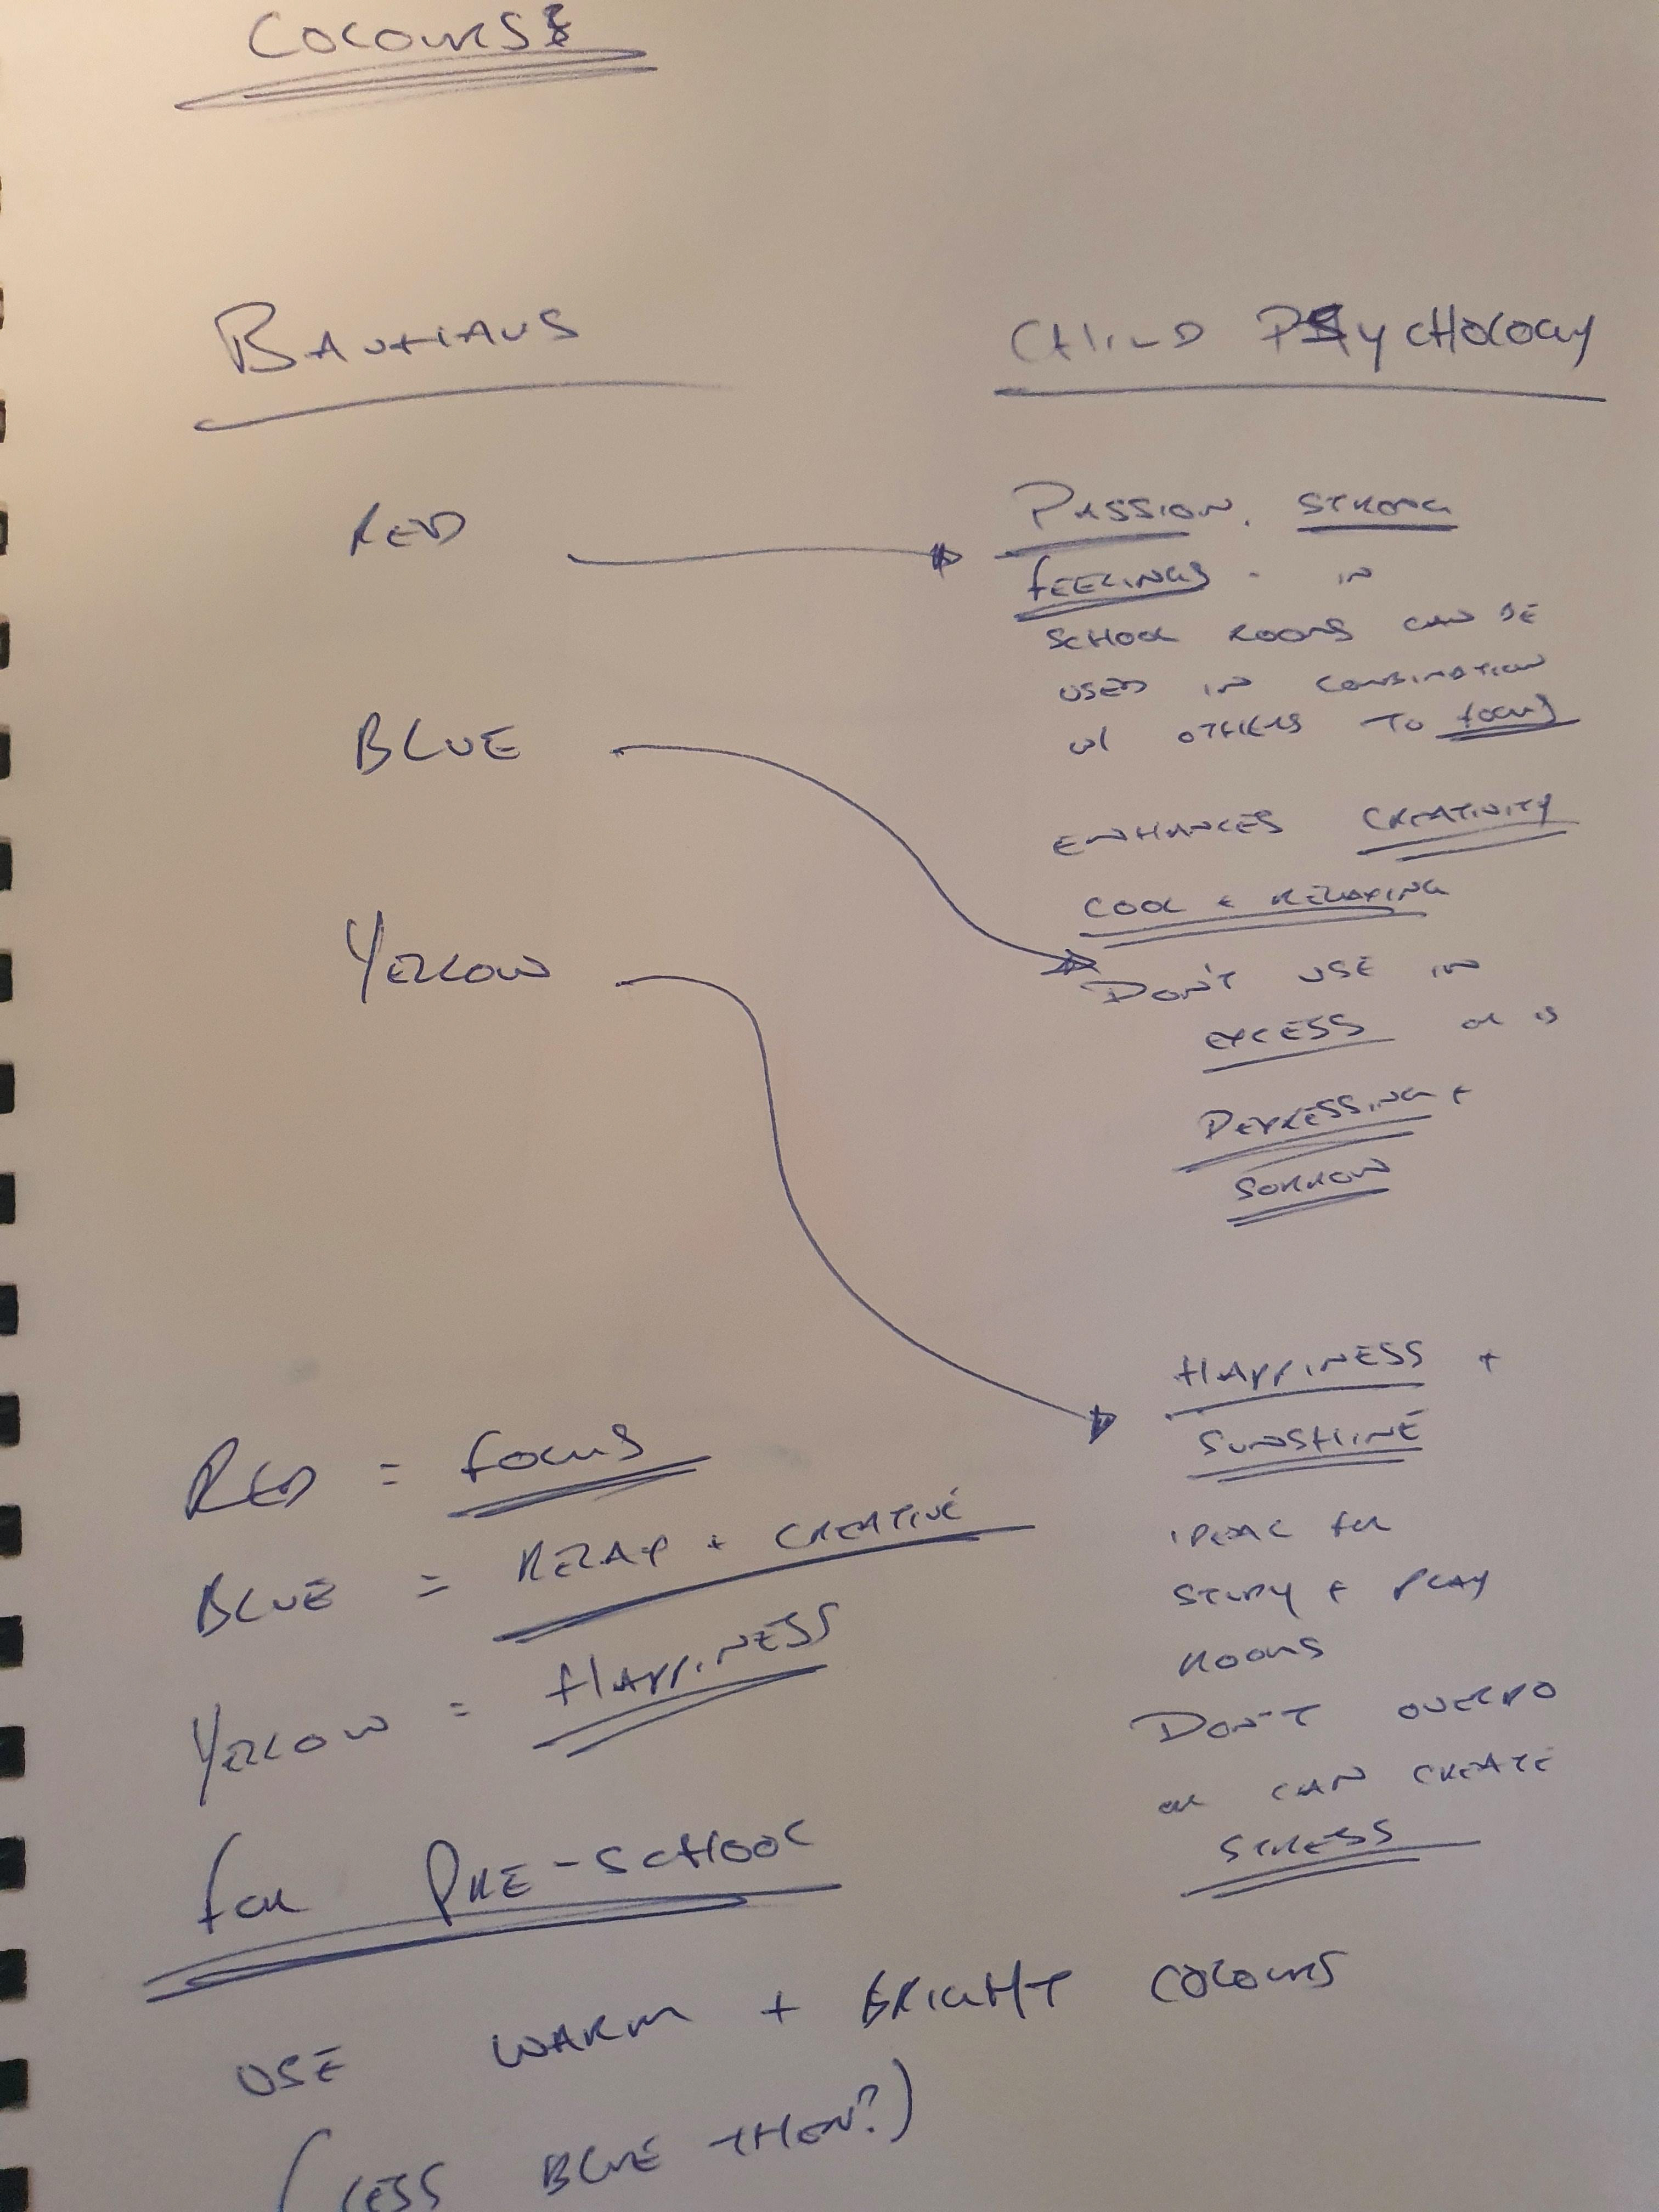 COLOURS:
BAUHAUS
CHILD PSYCHOLOGY
RED
PASSION. STRONG
FEELINGS. IN
SCHOOL ROOMS CAN BE
USED IN COMBINATION
W/ OTHERS TO FOCUS
BLUE
ENHANCES CREATIVITY
COOL + RELAXING
DON'T USE IN
EXCESS OR IS
DEPRESSING +
SORROW
YELLOW
HAPPINESS +
SUNSHINE
IDEAL FOR
STUDY + PLAY
ROOMS
DON'T OVERDO
OR CAN CREATE
STRESS
RED = FOCUS
BLUE = RELAX + CREATIVE
YELLOW = HAPPINESS
FOR PRE-SCHOOL
USE WARM + BRIGHT COLOURS
(LESS BLUE THEN?)